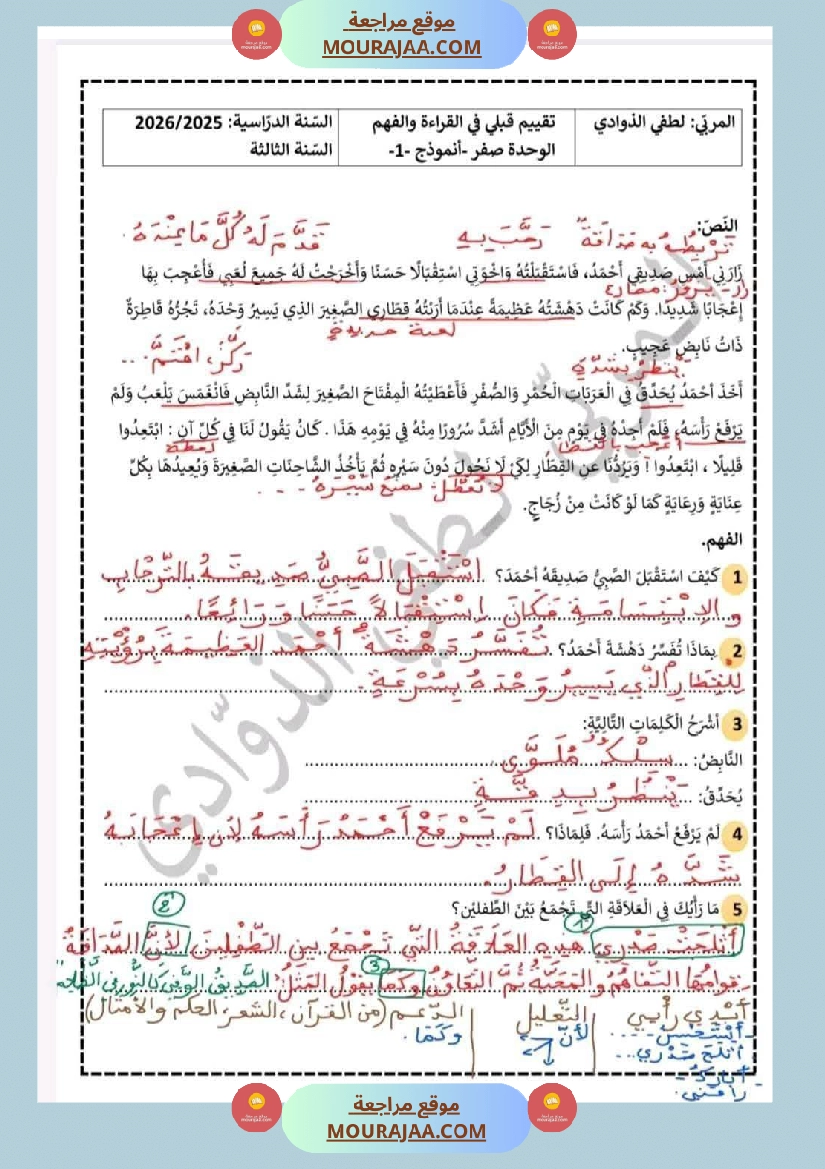 موقع مراجعة
MOURAJAA.COM
المربّي: لطفي الذوادي
تقييم قبلي في القراءة والفهم
الوحدة صفر -أنموذج -1-
السّنة الدرّاسية: 2026/2025
السّنة الثالثة
النّصّ:
تَرْبِطُهُ بِهِ صَدَاقَةٌ
رَحَّبَ بِهِ
قَدَّمَ لَهُ كُلَّ مَا يَمْلِكُهُ
زَارَنِي أَمْسِ صَدِيقِي أَحْمَدُ، فَاسْتَقْبَلْتُهُ وَإِخْوَتِي اسْتِقْبَالًا حَسَنًا وَأَخْرَجْتُ لَهُ جَمِيعَ لُعَبِي فَأُعْجِبَ بِهَا
إِعْجَابًا شَدِيدًا. وَكَمْ كَانَتْ دَهْشَتُهُ عَظِيمَةً عِنْدَمَا أَرَيْتُهُ قِطَارِي الصَّغِيرَ الذِي يَسِيرُ وَحْدَهُ، تَجُرُّهُ قَاطِرَةٌ
لعبة حديدية
ذَاتُ نَابِضٍ عَجِيبٍ.
ينظر بشدّة
ركّز، اهتمّ...
أَخَذَ أَحْمَدُ يُحَدِّقُ فِي الْعَرَبَاتِ الْحُمْرِ وَالصُّفْرِ فَأَعْطَيْتُهُ الْمِفْتَاحَ الصَّغِيرَ لِشَدِّ النَّابِضِ فَانْغَمَسَ يَلْعَبُ وَلَمْ
يَرْفَعْ رَأْسَهُ، فَلَمْ أَجِدْهُ فِي يَوْمٍ مِنَ الْأَيَّامِ أَشَدَّ سُرُورًا مِنْهُ فِي يَوْمِهِ هَذَا . كَانَ يَقُولُ لَنَا فِي كُلِّ آنٍ : ابْتَعِدُوا
لحظة
قَلِيلًا ، ابْتَعِدُوا ! وَيَرُدُّنَا عَنِ القِطَارِ لِكَيْ لَا نَحُولَ دُونَ سَيْرِهِ ثُمَّ يَأْخُذُ الشَّاحِنَاتِ الصَّغِيرَةَ وَيُعِيدُهَا بِكُلِّ
لا نعطّل: نمنع سيره...
عِنَايَةٍ وَرِعَايَةٍ كَمَا لَوْ كَانَتْ مِنْ زُجَاجٍ.
الفهم.
1 كَيْفَ اسْتَقْبَلَ الصَّبِيُّ صَدِيقَهُ أَحْمَدَ؟ اسْتَقْبَلَ الصَّبِيُّ صَدِيقَهُ بِالتِّرْحَابِ
وَالِابْتِسَامَةِ فَكَانَ اِسْتِقْبَالًا حَسَنًا وَرَائِعًا.
2 بِمَاذَا تُفَسِّرُ دَهْشَةَ أَحْمَدُ؟ تُفَسَّرُ دَهْشَةُ أَحْمَدَ العَظِيمَةَ بِرُؤْيَتِهِ
لِلقِطَارِ الّذِي يَسِيرُ وَحْدَهُ بِسُرْعَةٍ.
3 أَشْرَحُ الْكَلِمَاتِ التَّالِيَّةِ:
النَّابِضُ: سِلْكٌ مُلَوَّى
يُحَدِّقُ: يَنْظُرُ بِدِقَّةٍ
4 لَمْ يَرْفَعْ أَحْمَدُ رَأْسَهُ. فَلِمَاذَا؟ لَمْ يَرْفَعْ أَحْمَدُ رَأْسَهُ لأنّ إِعْجَابَهُ
شَدَّهُ إِلَى القِطَارِ.
5 مَا رَأْيُكَ فِي الْعَلَاقَةِ الّتِي تَجْمَعُ بَيْنَ الطِّفلَيْنِ؟
أَثْلَجَتْ صَدْرِي هذِهِ العَلَاقَةُ الّتِي تَجْمَعُ بين الطِّفْلَيْنِ لأنَّ الصَّدَاقَةَ
قوامُها التّفاهُمُ والمَحَبَّةُ ثُمَّ التَّعَاوُنُ وكما يَقُولُ المَثَلُ الصّديقُ الوَفيّ كالنُّورِ في الظّلامِ
أُبْدِي رأيي
التّعليل
الدّعم (من القرآن، الشعر، الحكم والأمثال)
- أستحسن...
لأنّ
وكما.
- أثلج صدري...
- أبارك
- راقني.
المربّي لطفي الذوّادي
موقع مراجعة
MOURAJAA.COM